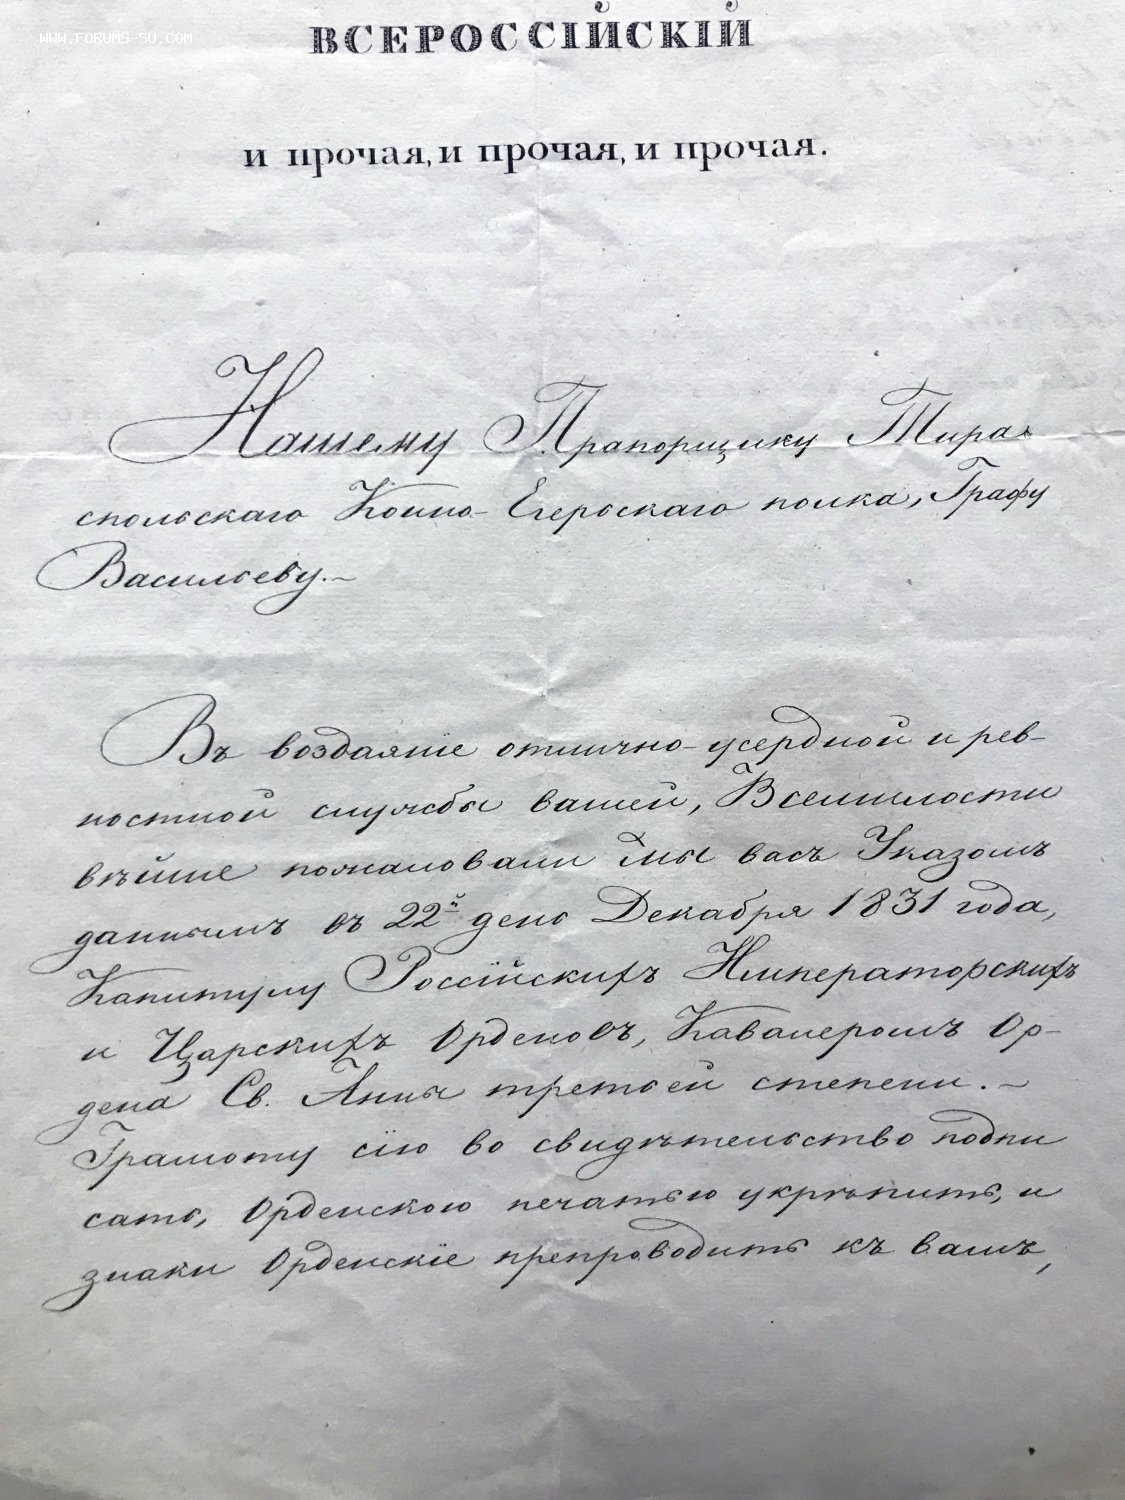 WWW.FORUMS-SU.COM
ВСЕРОССІЙСКІЙ
и прочая, и прочая, и прочая.
Нашему Прапорщику Тира-
спольскаго Конно-Егерскаго полка, Графу
Васильеву.~
Въ воздаяніе отлично-усердной и рев-
ностной службы вашей, Всемилости
вѣйше пожаловали Мы васъ Указомъ
даннымъ въ 22й день Декабря 1831 года,
Капитулу Россійскихъ Императорскихъ
и Царскихъ Орденовъ, Кавалеромъ Ор-
дена Св. Анны третьей степени.~
Грамоту сію во свидѣтельство подпи
сать, Орденскою печатью укрѣпить, и
знаки Орденскіе препроводить къ вамъ,